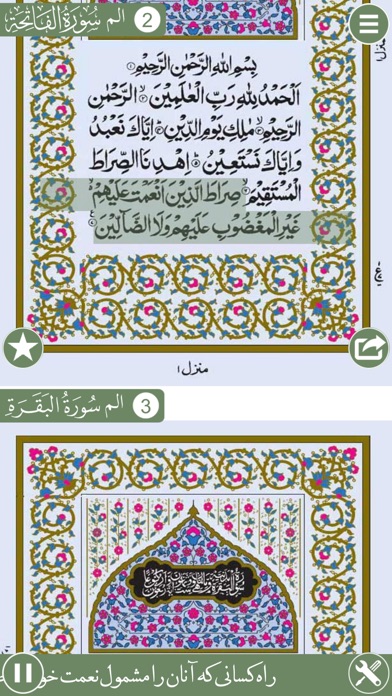 الم سُورَةُ الفَاتِحَة 2
بِسْمِ اللهِ الرَّحْمٰنِ الرَّحِيْمِ
اَلْحَمْدُ لِلّٰهِ رَبِّ الْعٰلَمِيْنَ الرَّحْمٰنِ
الرَّحِيْمِ مٰلِكِ يَوْمِ الدِّيْنِ اِيَّاكَ نَعْبُدُ
وَاِيَّاكَ نَسْتَعِيْنُ اِهْدِنَا الصِّرَاطَ
الْمُسْتَقِيْمَ صِرَاطَ الَّذِيْنَ اَنْعَمْتَ عَلَيْهِمْ
غَيْرِ الْمَغْضُوْبِ عَلَيْهِمْ وَلَا الضَّآلِّيْنَ
منزل ١
الم سُورَةُ البَقَرَةِ 3
راه کسانی که آنان را مشمول نعمت